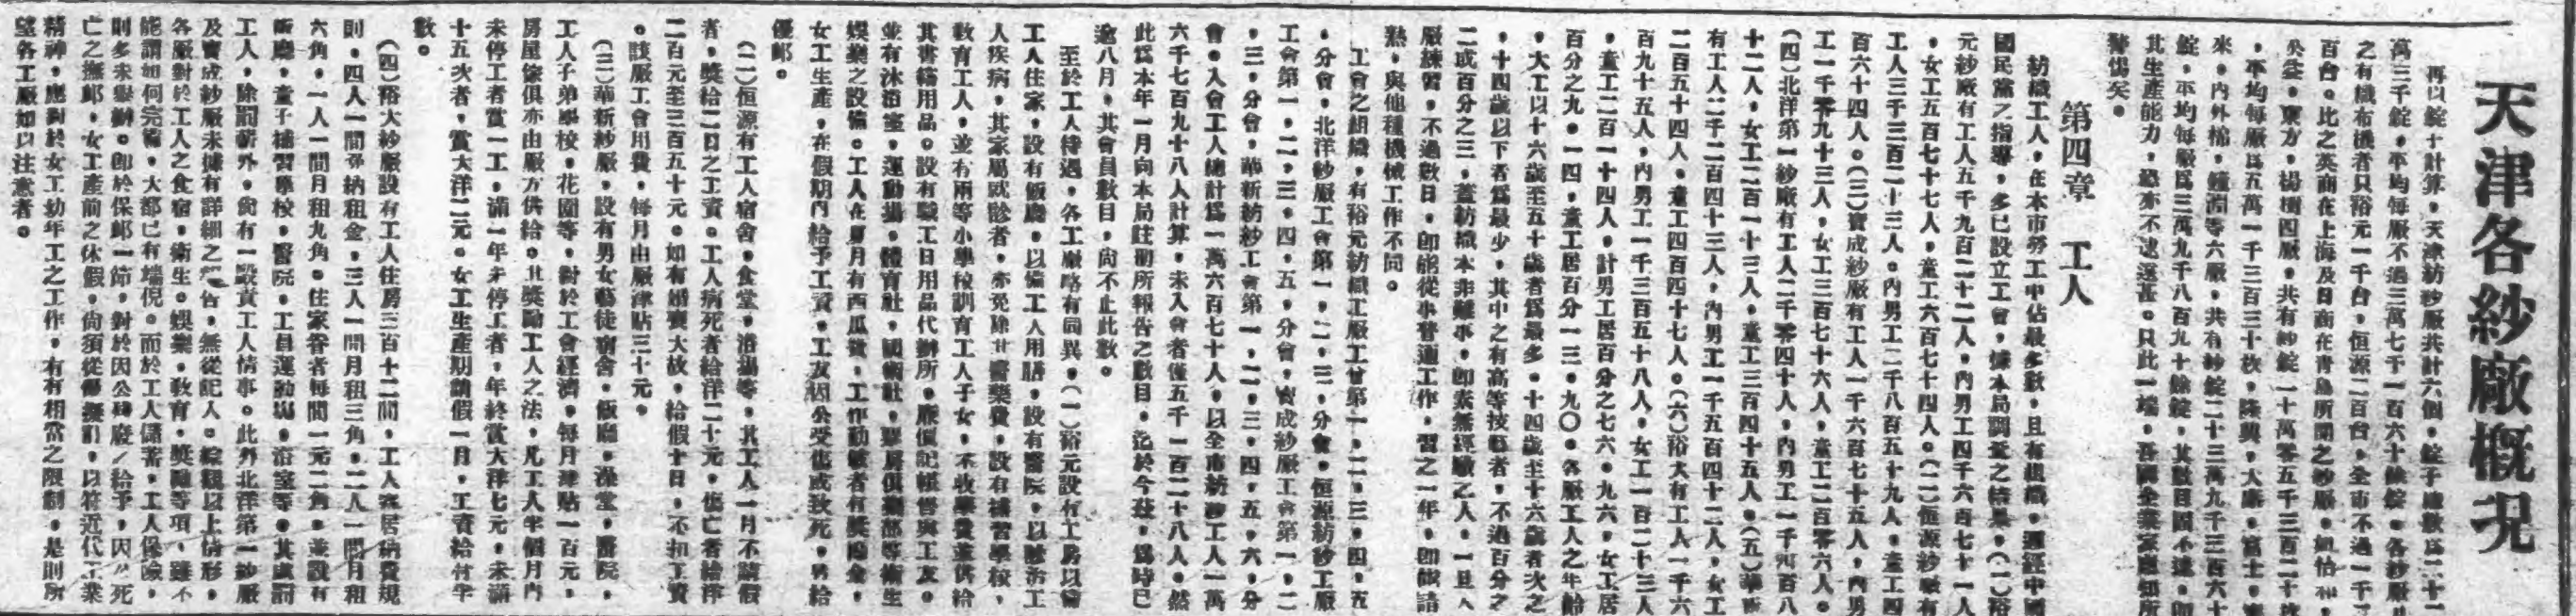 天津各紗廠概況
再以錠子計算，天津紡紗廠共計六個，錠子總數爲二十二
萬三千錠，平均每廠不過三萬七千一百六十餘錠。各紗廠
之有織布機者只裕元一千台，恒源二百台，全市不過一千
百台。比之英商在上海及日商在青島所開之紗廠，如怡和，
東方，楊樹四廠，共有紗錠一十萬零五千三百二十
，平均每廠爲五萬一千三百三十枚，隆興，大康，富士，
來，內外棉，鐘淵等六廠，共有紗錠二十三萬九千三百六十
錠，平均每廠爲三萬九千八百九十餘錠，其數目固不逮，即
其生產能力，恐亦不逮遠甚。只此一端，吾國全業家應知所
警惕矣。
第四章　工人
紡織工人，在本市勞工中佔最多數，且有組織，邇經中國
國民黨之指導，多已設立工會，據本局調查之結果，（一）裕
元紗廠有工人五千九百二十二人，內男工四千六百七十一人
，女工五百七十七人，童工六百七十四人。（二）恒源紗廠有
工人三千三百二十三人。內男工二千八百五十九人，童工四
百六十四人。（三）寶成紗廠有工人一千六百七十五人，內男
工一千零九十三人，女工三百七十六人，童工二百零六人。
（四）北洋第一紗廠有工人二千零四十人，內男工一千四百八
十二人，女工二百一十三人，童工三百四十五人。（五）華新
有工人二千二百四十三人，內男工一千五百四十二人，女工
二百五十四人。童工四百四十七人。（六）裕大有工人一千六
百九十五人，內男工一千三百五十八人，女工一百二十三人
，童工二百一十四人，計男工居百分之七六．九六，女工居
百分之九．一四，童工居百分一三．九〇。各廠工人之年齡
，大工以十六歲至五十歲者爲最多。十四歲至十六歲者次之
，十四歲以下者爲最少，其中之有高等技藝者，不過百分之
二或百分之三，蓋紡織本非難事，即素無經驗之人，一旦入
廠練習，不過數日，即能從事普通工作，習之一年，即能諳
熟，與他種機械工作不同。
工會之組織，有裕元紡織工廠工會第一，二，三，四，五
，分會，北洋紗廠工會第一，二，三，分會，恒源紡紗工廠
工會第一，二，三，四，五，分會，寶成紗廠工會第一，二
，三，分會，華新紡紗工會第一，二，三，四，五，六，分
會。入會工人總計爲一萬六百七十人，以全市紡紗工人一萬
六千七百九十八人計算，未入會者僅五千一百二十八人。然
此爲本年一月向本局註冊所報告之數目，迄於今茲，爲時已
逾八月，其會員數目，尚不止此數。
至於工人待遇，各工廠略有同異，（一）裕元設有工房以備
工人住家，設有飯廳，以備工人用膳，設有醫院，以診治工
人疾病，其家屬就診者，亦免除其醫藥費，設有補習學校，
敎育工人，並有兩等小學校訓育工人子女，不收學費並供給
其書籍用品。設有職工日用品代辦所，廉價記帳售與工友。
並有沐浴室，運動場，體育社，國術社，俱樂部等衛生
娛樂之設備。工人在夏月有西瓜費，工作勤敏者有獎勵金，
女工生產，在假期內給予工資，工友因公受傷或致死，另給
優卹。
（二）恒源有工人宿舍，食堂，浴場等，其工人一月不請假
者，獎給二日之工資。工人病死者給洋二十元，傷亡者給洋
二百元至三百五十元。如有婚喪大故，給假十日，不扣工資
。該廠工會用費，每月由廠津貼三十元。
（三）華新紗廠，設有男女藝徒宿舍，飯廳，澡堂，醫院，
工人子弟學校，花園等，對於工會經濟，每月津貼一百元，
房屋傢俱亦由廠方供給。其獎勵工人之法，凡工人半個月內
未停工者賞一工，滿一年未停工者，年終賞大洋七元，未滿
十五次者，賞大洋二元。女工生產期請假一月，工資給付半
數。
（四）裕大紗廠設有工人住房三百十二間，工人寄居納費規
則，四人一間免納租金，三人一間月租三角，二人一間月租
六角，一人一間月租九角。住家眷者每間一元二角。並設有
飯廳，童子補習學校，醫院，工員運動場，浴室等。其處罰
工人，除罰薪外。尚有一毆責工人情事。此外北洋第一紗廠
及寶成紗廠未據有詳細之報告，無從記入。綜觀以上情形，
各廠對於工人之食宿，衛生，娛樂，敎育，獎勵等項，雖不
能謂如何完備，大都已有端倪。而於工人儲蓄，工人保險，
則多未舉辦。即於保卹一節，對於因公殘廢之給予，因公死
亡之撫卹，女工產前之休假，尚須從優釐訂，以符近代工業
精神，應對於女工幼年工之工作，有有相當之限制，是則所
望各工廠加以注意者。